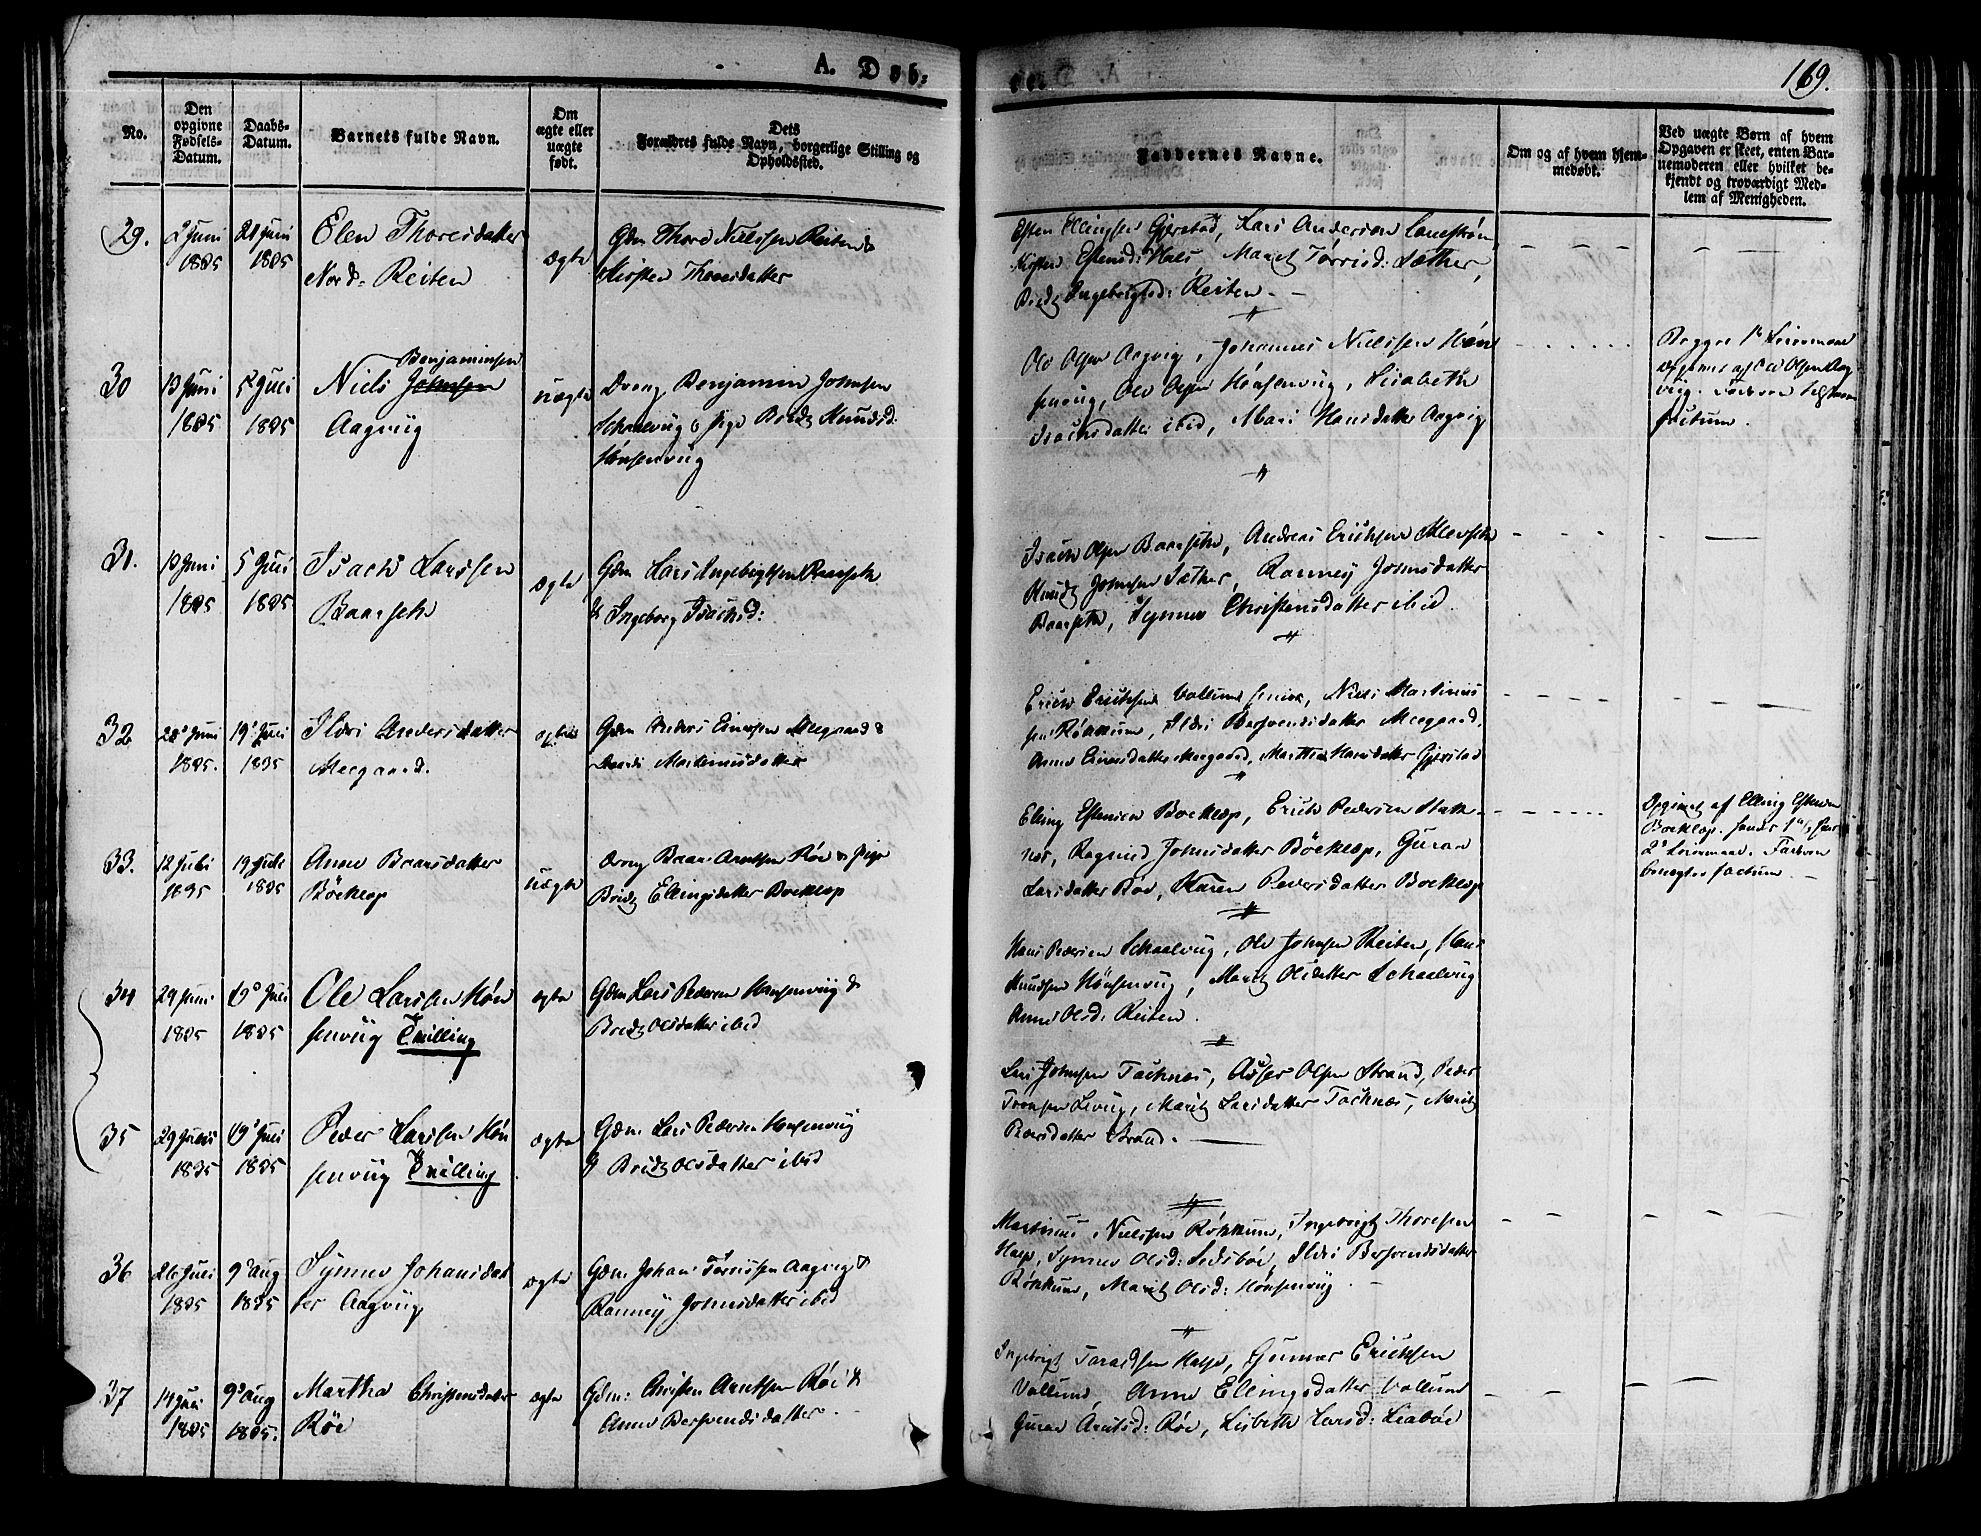 A. Døb:
169.
No.
Den opgivne Fødsels-Datum.
Daabs-Datum.
Barnets fulde Navn.
Om ægte eller uægte født.
Dets Forældres fulde Navn, borgerlige Stilling og Opholdssted.
Faddernes Navne.
Om og af hvem hjemmedøbt.
Ved uægte Børn af hvem
Opgaven er skeet, enten Bar-
nemoderen eller hvilket be-
kjendt og troværdigt Med-
lem af Menigheden.
29.
2 Juni 1835
21 Juni 1835
Elen Thoresdatter
Nord-Reiten
ægte
Gdm Thore Nielssen Reiten &
Kirsten Thoresdatter
Esten Ellingsen Gjerstad, Lars Andersen
Kirsten Estensd: Hals Marit Torrisd: Sæther,
Ingebrigtsd: Reiten. -
30
13 Juni 1835
5 Juli 1835
Benjaminsen
Niels Johnsen
Aagvig
uægte
Dreng Benjamin Johnsen
Schaalvug & Pige Knudsd:
Hønsenvug
Ole Olsen Aagvig, Johannes Nielssen Høn
senvug, Ole Olsen Hønsenvug, Lisabeth
Isachsdatter ibid, Mari Hansdatter Aagvig
Begge 1te Leiermaal
Ole Olsen Aag
vig.
31.
1835
5 Juli 1835
Isach Larssen
Baarseth
ægte
Gdm Lars Ingebrigtsen Baarseth
& Ingeborg Isachsd:
Isach Olsen Baarseth, Andreas Erichsen
Knud Johnsen Sæther, Ranney Johnsdatter
Baarseth, Synnev Christensdatter ibid
32
28 Juni 1835.
19 Juli 1835
Ildri Andersdatter
Meegaard.
ægte
Gdm Anders Einersen Meegaard &
Martinusdatter
Erich Erichsen Vollum, Niels Martinus
sen Røkkum, Ildri Bersvendsdatter Meegaard,
Anne Einersdatter Meegaard, Marthe Hansdatter Gjerstad
33.
12 Juli 1835
19 Juli 1835
Anne Baarsdatter
Böeklep
uægte
Dreng Baar Arntsen Röe & Pige
Ellingsdatter Boeklep
Elling Estensen Boeklep, Erich Pedersen
Ragnild Johnsdatter Böeklep, Guran
Larsdatter Röe, Karen Pedersdatter Boeklep
Opgivet af Elling Estensen
Boeklep.
2d Leiermaal. Faderen
benegter factum.
34
29 Juni 1835
19 Juli 1835
Ole Larssen Høn
senvug Tvilling
ægte
Gdm Lars Pedersen Hønsenvug &
Olsdatter ibid
Hans Pedersen Schaalvug, Ole Johnsen Reiten, Hans
Knudsen Hönsenvug, Marit Olsdatter Schaalvug
Anne Olsd: Reiten.
35
29 Juni 1835
19 Juli 1835
Peder Larssen Høn
senvug Tvilling
ægte
Gdm. Lars Pedersen Hønsenvug
& Olsdatter ibid
Lars Johnsen Taknes, Asser Olsen Strand, Peder
Marit Larsdatter Taknes, Marit
Pedersdatter Strand.
36
26 Juli 1835
9 Aug 1835
Synnev Johansdat
ter Aagvig
ægte
Gdm. Johan Torrissen Aagvig &
Ranney Johnsdatter ibid
Martinus Nielssen Røkkum, Ingebrigt Thoresen
Synnev Olsd: Ildri Bersvendsdatter
Røkkum, Marit Olsd: Hønsenvug
37
1835
9 Aug 1835.
Martha Christensdatter
Röe
ægte
Gdm: Christen Arntsen Röe &
Anne Bersvendsdatter.
Ingebrigt Gunner Erichsen
Vollum Anne Ellingsdatter Vollum
Guran Arntsd: Röe, Lisbeth Larsd: